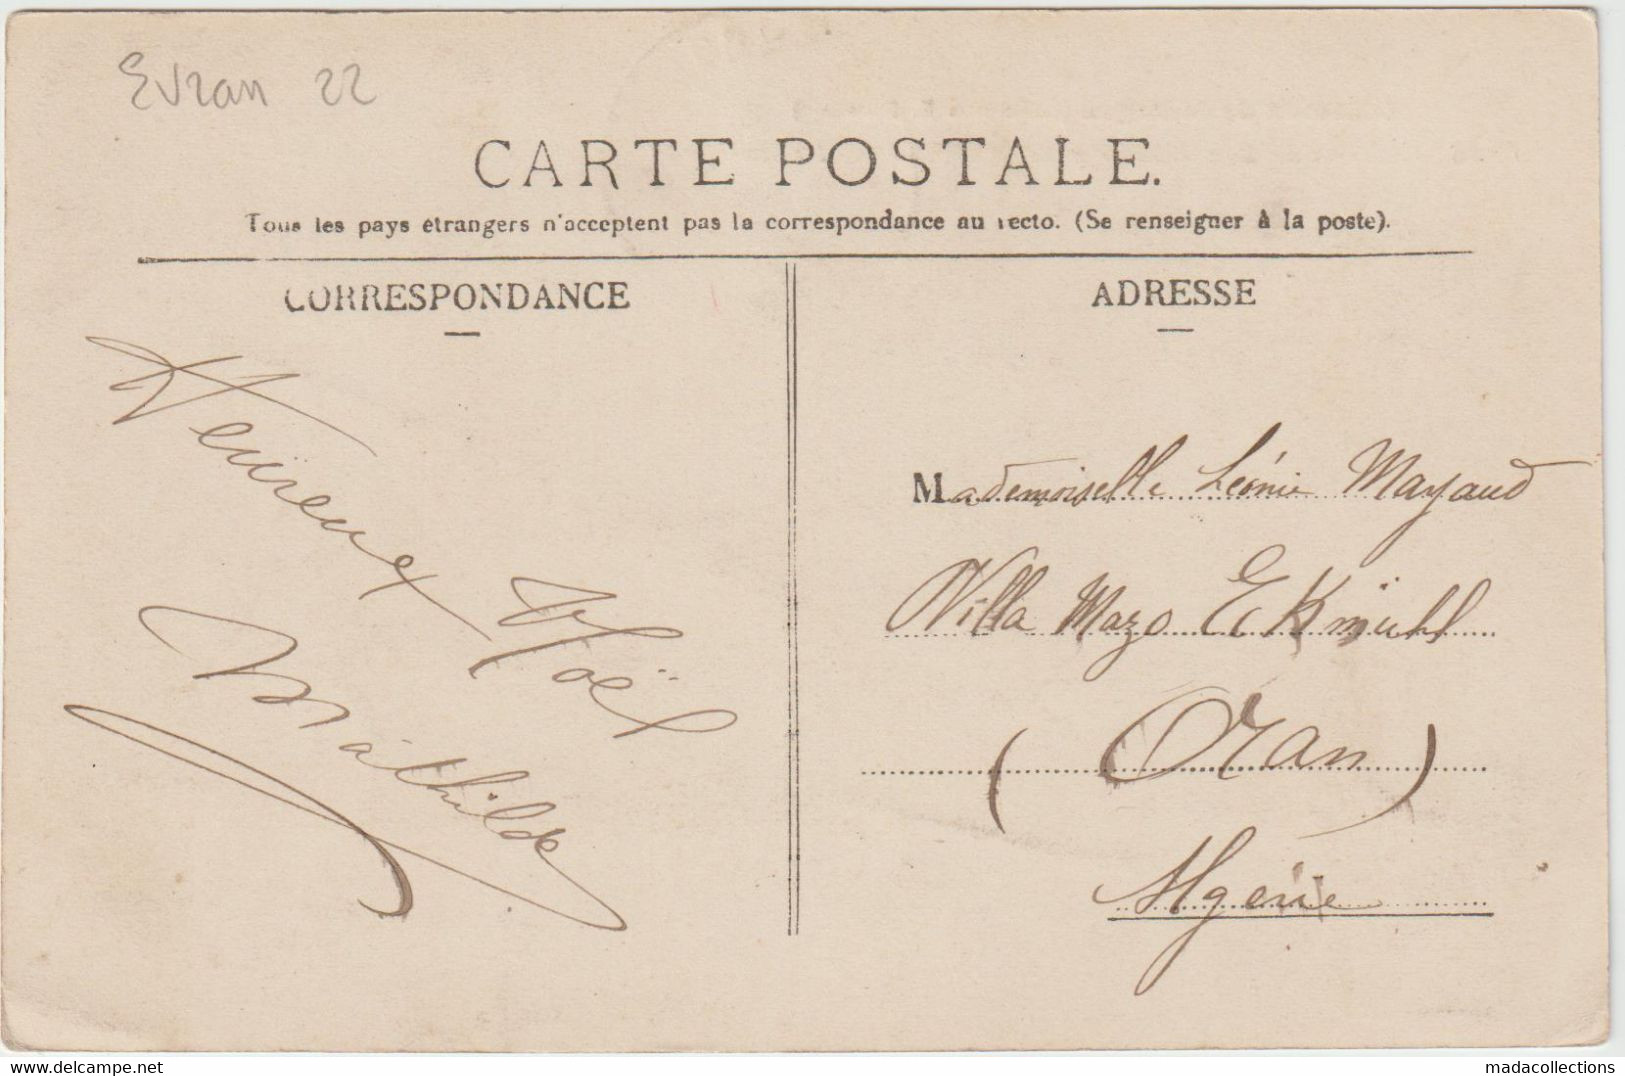 Evran 22
CARTE POSTALE.
Tous les pays étrangers n'acceptent pas la correspondance au recto. (Se renseigner à la poste).
CORRESPONDANCE
Heureux Noël
Mathilde
ADRESSE
Mademoiselle Léonie Mayaud
Villa Mazo Ekmühl
(Oran)
Algérie
www.delcampe.net
madacollections